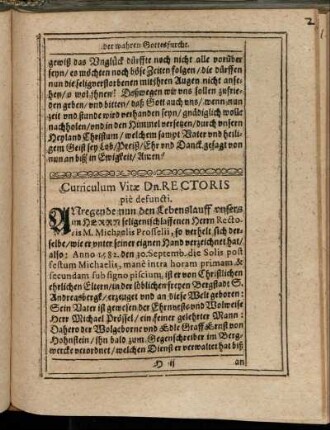 der wahren Gottesfurcht.
2
gewiß das Unglück dürffte noch nicht alle vorüber
seyn / es möchten noch böse Zeiten folgen / die dürffen
nun die seligverstorbenen mit jhren Augen nicht anse-
hen / o wol jhnen! Deßwegen wir uns sollen zufrie-
den geben / und bitten / daß Gott auch uns / wenn nun
zeit und stunde wird verhanden seyn / gnädiglich wolle
nachholen / und in den Himmel versetzen / durch unsern
Heyland Christum / welchem sampt Vater und heili-
gem Geist sey Lob / Preiß / Ehr und Danck gesagt von
nun an biß in Ewigkeit / Amen!
Curriculum Vitæ Dn. RECTORIS
piè defuncti.
ANregende nun den Lebenslauff unsers
im HERRN selig entschlaffenen Herrn Recto-
ris M. Michaelis Prosselii, so verhelt sich der-
selbe / wie er unter seiner eignen Hand verzeichnet hat /
also: Anno 1582. den 30. Septemb. die Solis post
festum Michaelis, manè intra horam primam &
secundam sub signo piscium, ist er von Christlichen
ehrlichen Eltern / in der löblichen freyen Bergstadt S.
Andreasbergk / erzeuget und an diese Welt geboren:
Sein Vater ist gewesen der Ehrnveste und Wolweise
Herr Michael Prössel / ein feiner gelehrter Mann:
Dahero der Wolgeborne und Edle Graff Ernst von
Hohnstein / ihn bald zum Gegenschreiber im Berg-
wercke verordnet / welchen Dienst er verwaltet hat biß
H ij
an